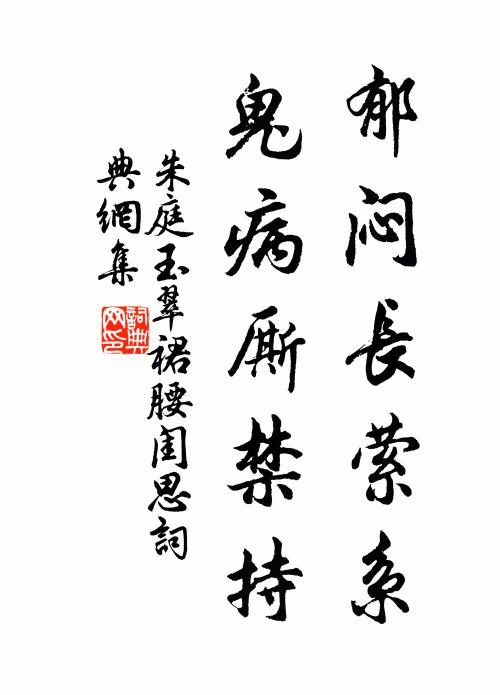 郁闷長萦系
鬼病厮禁持
朱庭玉翠裙腰闺思詞
典網集
詞典网印